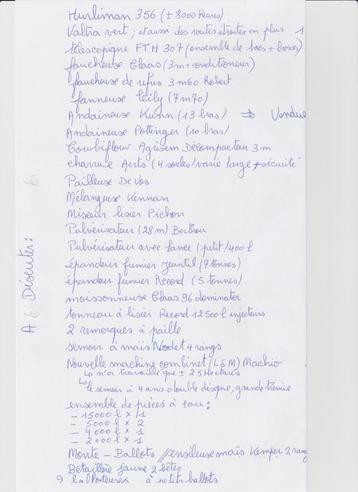 Hurliman 356 (± 8000 heures)
Valtra vert ; et aussi des roues étroites en plus 1
télescopique FTH 307 (ensemble de bacs + boxes)
faucheuse Claas (3m + conditioneur)
faucheuse de refus 3m60 Robert
fanneuse (7m70)
Andaineuse Kuhn (13 bras) ⇒ Vendue
Andaineuse Pottinger (10 bras)
Combiflow Agrisem Décompacteur 3m
charrue (4 socles/varié large + sécurité
Pailleuse De Vos
Mélangeuse Kennan
Mixeur lisier Pichon
Pulvérisateur (28m) Berthou
Pulvérisateur avec lance (petit/400 l
épandeur fumier Jeantil (7 tonnes)
épandeur fumier Record (5 tonnes)
moissonneuse Claas 96 dominator
tonneau à lisier Record 12500 l injecteurs
2 remorques à paille
semoir à maïs Nodet 4 rangs
Nouvelle machine combinet (L&M) Machio
↳ n'a travaillé que ± 25 Hectares
↳ le semoir à 4 ans double disque, grande trémie
ensemble de pièces à eau :
- 15000 l × 1
- 5000 l × 2
- 4000 l × 1
- 2000 l × 1
Monte-Ballots // ensilleuse maïs Kemper 2 rang
Bétaillère jaune 2 bêtes
9 à petits ballots
A Discuter :